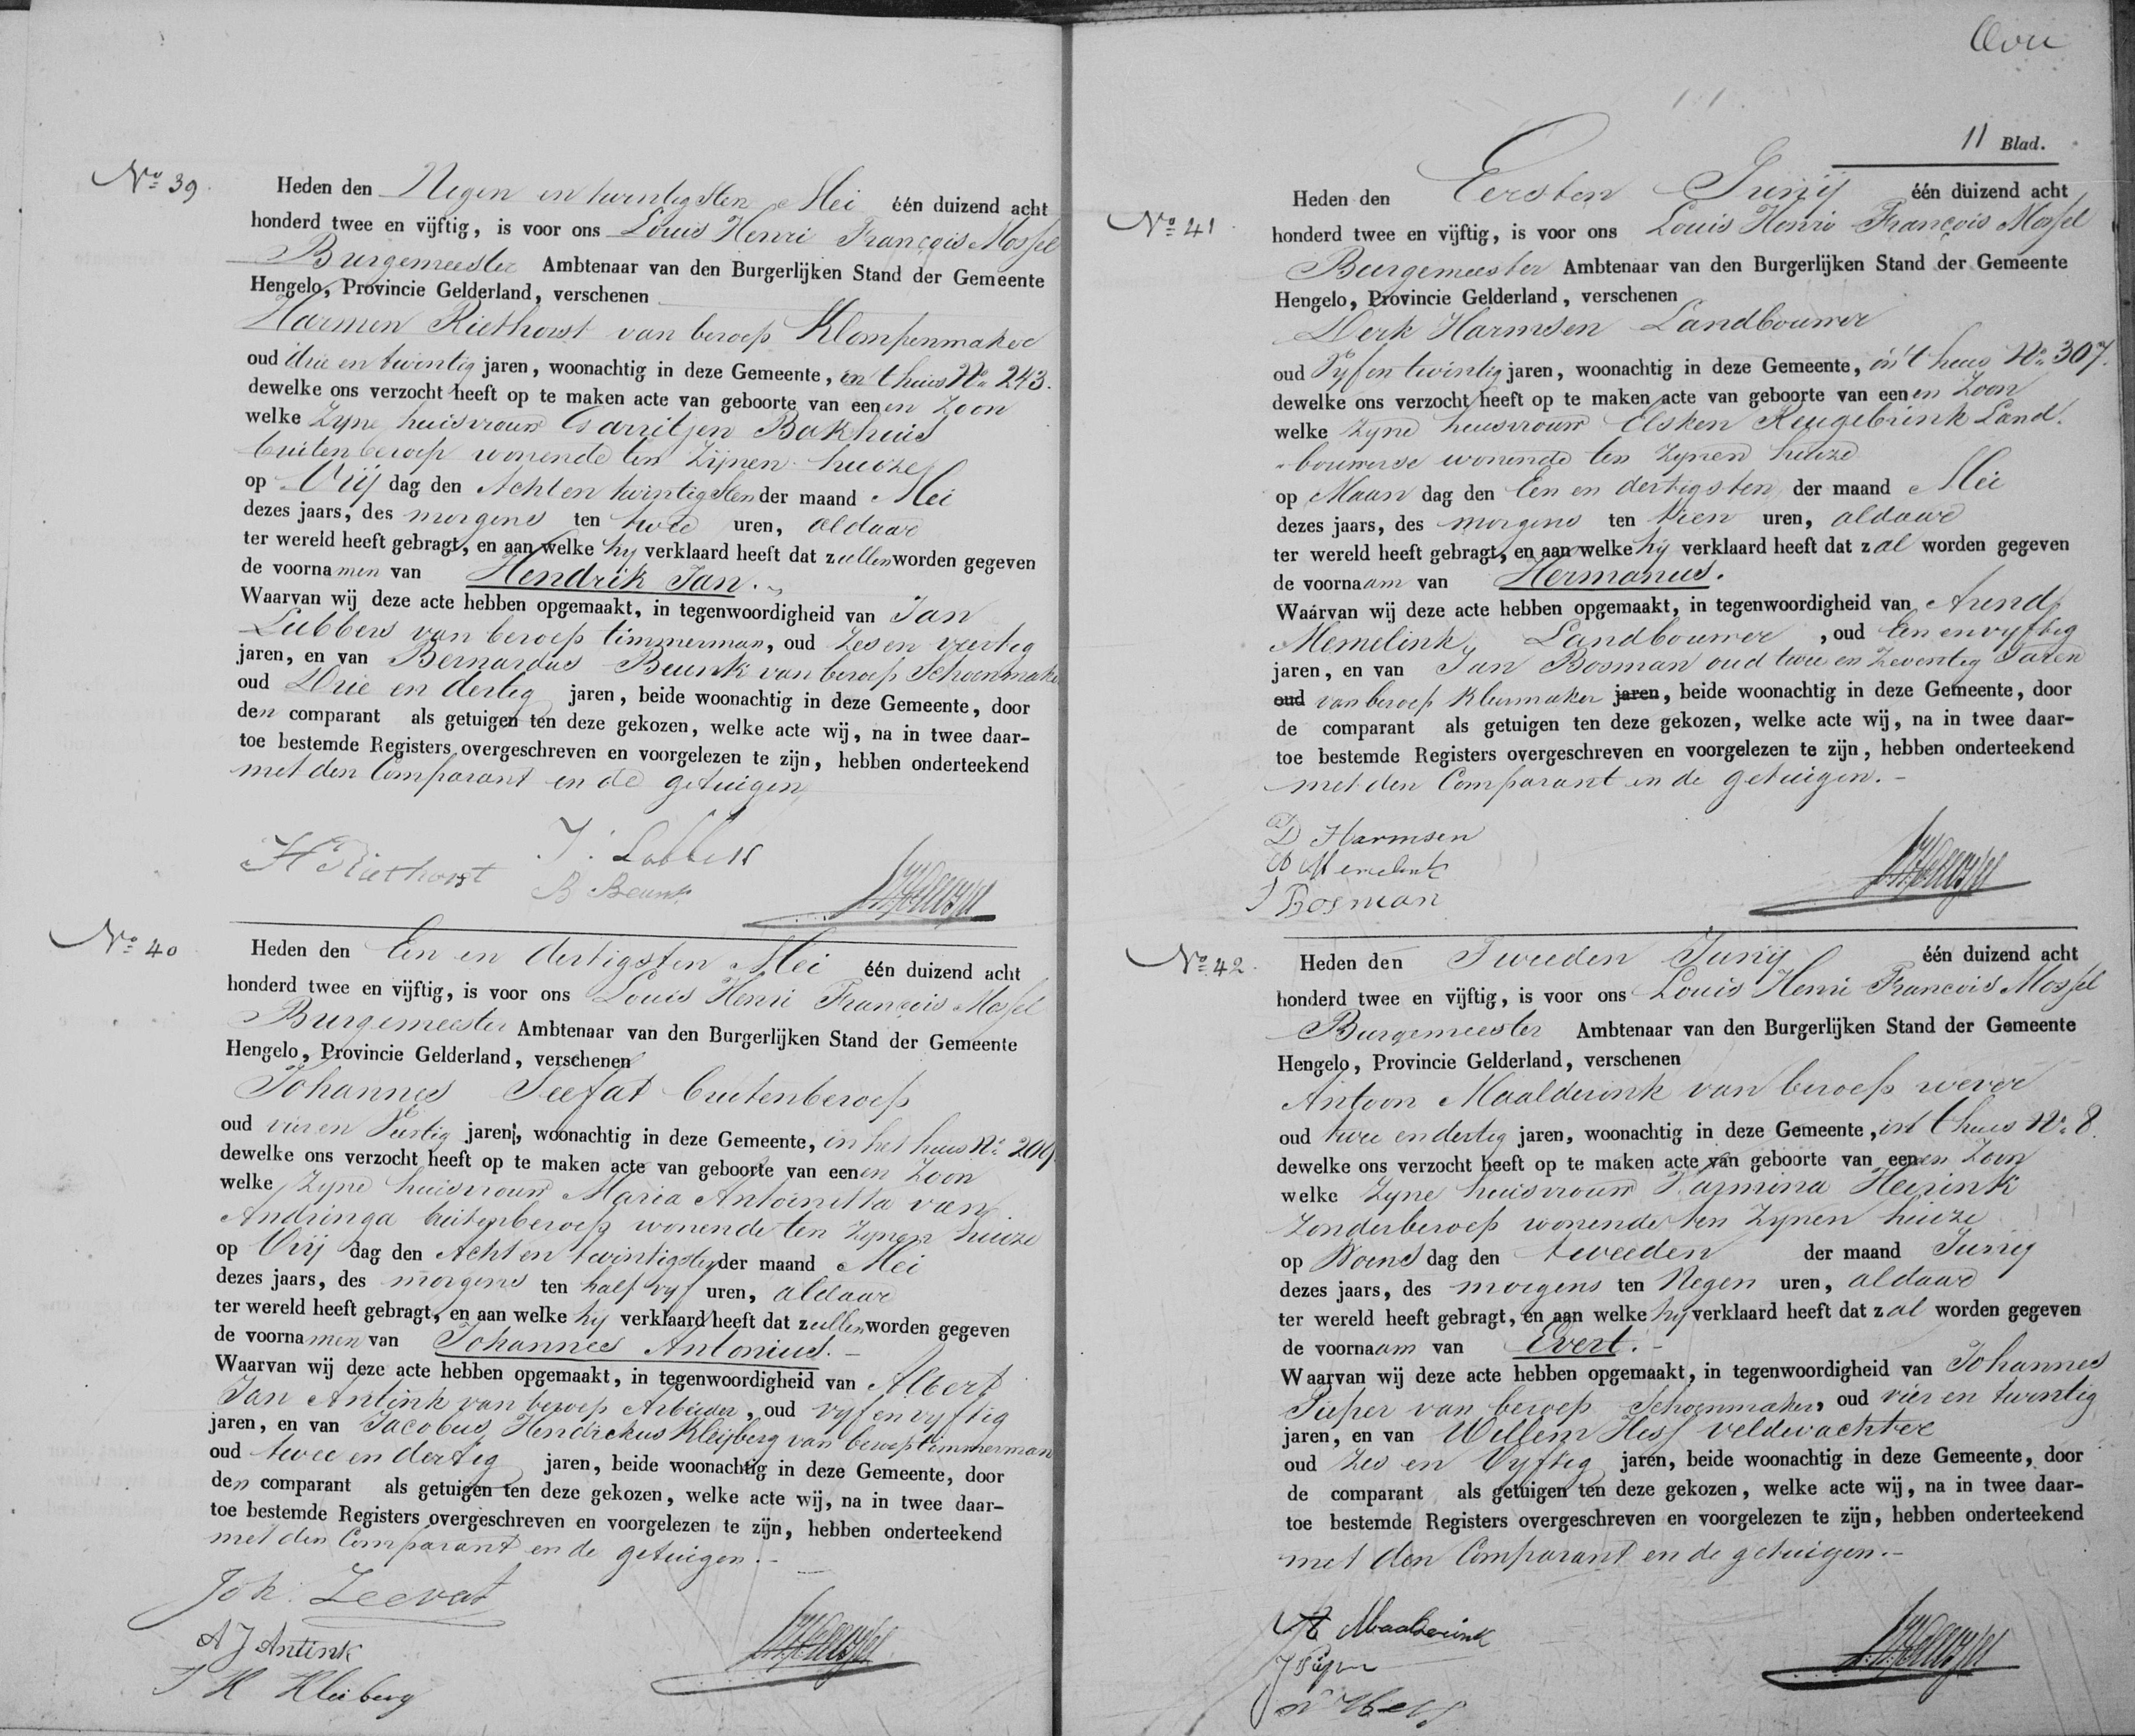 Nº 39.
Heden den Negen en twintigsten Mei één duizend acht
honderd twee en vijftig, is voor ons Louis Henri François Mossel
Burgemeester Ambtenaar van den Burgerlijken Stand der Gemeente
Hengelo, Provincie Gelderland, verschenen
Harmen Riethorst van beroep Klompenmaker
oud drie en twintig jaren, woonachtig in deze Gemeente, in 't huis No 243.
dewelke ons verzocht heeft op te maken acte van geboorte van eenen Zoon
welke Zyne huisvrouw Garritjen Bakhuis
buitenberoep wonende ten Zijnen huize
op Vrij dag den Acht en twintigsten der maand Mei
dezes jaars, des morgens ten twee uren, aldaar
ter wereld heeft gebragt, en aan welke hy verklaard heeft dat zullen worden gegeven
de voornamen van Hendrik Jan.
Waarvan wij deze acte hebben opgemaakt, in tegenwoordigheid van Jan
Lubbers van beroep timmerman, oud Zes en veertig
jaren, en van Bernardus Beunk van beroep Schoenmaker
oud Drie en dertig jaren, beide woonachtig in deze Gemeente, door
den comparant als getuigen ten deze gekozen, welke acte wij, na in twee daar-
toe bestemde Registers overgeschreven en voorgelezen te zijn, hebben onderteekend
met den Comparant en de getuigen
H Riethorst
J. Lubbers
B Beunk
Nº 40
Heden den Een en dertigsten Mei één duizend acht
honderd twee en vijftig, is voor ons Louis Henri François Mossel
Burgemeester Ambtenaar van den Burgerlijken Stand der Gemeente
Hengelo, Provincie Gelderland, verschenen
Johannes Seefat buitenberoep
oud vier en Veertig jaren, woonachtig in deze Gemeente, in het huis No 209.
dewelke ons verzocht heeft op te maken acte van geboorte van eenen Zoon
welke Zyne huisvrouw Maria Antoinetta van
Andringa buitenberoep wonende ten Zynen huize
op Vrij dag den Acht en twintigsten der maand Mei
dezes jaars, des morgens ten half vyf uren, aldaar
ter wereld heeft gebragt, en aan welke hij verklaard heeft dat zullen worden gegeven
de voornamen van Johannes Antonius.
Waarvan wij deze acte hebben opgemaakt, in tegenwoordigheid van Albert
Jan Antink van beroep Arbeider, oud vyf en vyftig
jaren, en van Jacobus Hendrekus Kleijberg van beroep timmerman
oud twee en dertig jaren, beide woonachtig in deze Gemeente, door
den comparant als getuigen ten deze gekozen, welke acte wij, na in twee daar-
toe bestemde Registers overgeschreven en voorgelezen te zijn, hebben onderteekend
met den Comparant en de getuigen.
Joh. Zeevat
A J Antink
J H Kleiberg
11 Blad.
Nº 41
Heden den Eersten Junij één duizend acht
honderd twee en vijftig, is voor ons Louis Henri François Mossel
Burgemeester Ambtenaar van den Burgerlijken Stand der Gemeente
Hengelo, Provincie Gelderland, verschenen
Derk Harmsen Landbouwer
oud Vyf en twintig jaren, woonachtig in deze Gemeente, in 't huis No 307.
dewelke ons verzocht heeft op te maken acte van geboorte van eenen Zoon
welke Zyne huisvrouw Elsken Reugebrink Land
bouwerse wonende ten Zynen huize
op Maan dag den Een en dertigsten der maand Mei
dezes jaars, des morgens ten tien uren, aldaar
ter wereld heeft gebragt, en aan welke hij verklaard heeft dat zal worden gegeven
de voornaam van Hermanus.
Waarvan wij deze acte hebben opgemaakt, in tegenwoordigheid van Arend
Memelink, Landbouwer, oud Een en vyftig
jaren, en van Jan Bosman oud twee en Zeventig Jaren
oud van beroep Kleermaker jaren, beide woonachtig in deze Gemeente, door
de comparant als getuigen ten deze gekozen, welke acte wij, na in twee daar-
toe bestemde Registers overgeschreven en voorgelezen te zijn, hebben onderteekend
met den Comparant en de getuigen.
D Harmsen
A Memelink
J Bosman
Nº 42.
Heden den Tweeden Junij één duizend acht
honderd twee en vijftig, is voor ons Louis Henri Francois Mossel
Burgemeester Ambtenaar van den Burgerlijken Stand der Gemeente
Hengelo, Provincie Gelderland, verschenen
Antoon Maalderink van beroep wever
oud twee en dertig jaren, woonachtig in deze Gemeente, in 't huis No 8.
dewelke ons verzocht heeft op te maken acte van geboorte van eenen Zoon
welke Zyne huisvrouw Harmina Heerink
Zonderberoep wonende ten Zynen huize
op Woens dag den tweeden der maand Junij
dezes jaars, des morgens ten Negen uren, aldaar
ter wereld heeft gebragt, en aan welke hij verklaard heeft dat zal worden gegeven
de voornaam van Evert.
Waarvan wij deze acte hebben opgemaakt, in tegenwoordigheid van Johannes
Pieper van beroep Schoenmaker, oud vier en twintig
jaren, en van Willem Hess veldwachter
oud Zes en Vyftig jaren, beide woonachtig in deze Gemeente, door
de comparant als getuigen ten deze gekozen, welke acte wij, na in twee daar-
toe bestemde Registers overgeschreven en voorgelezen te zijn, hebben onderteekend
met den Comparant en de getuigen.
A Maalderink
J Pieper
W Hess